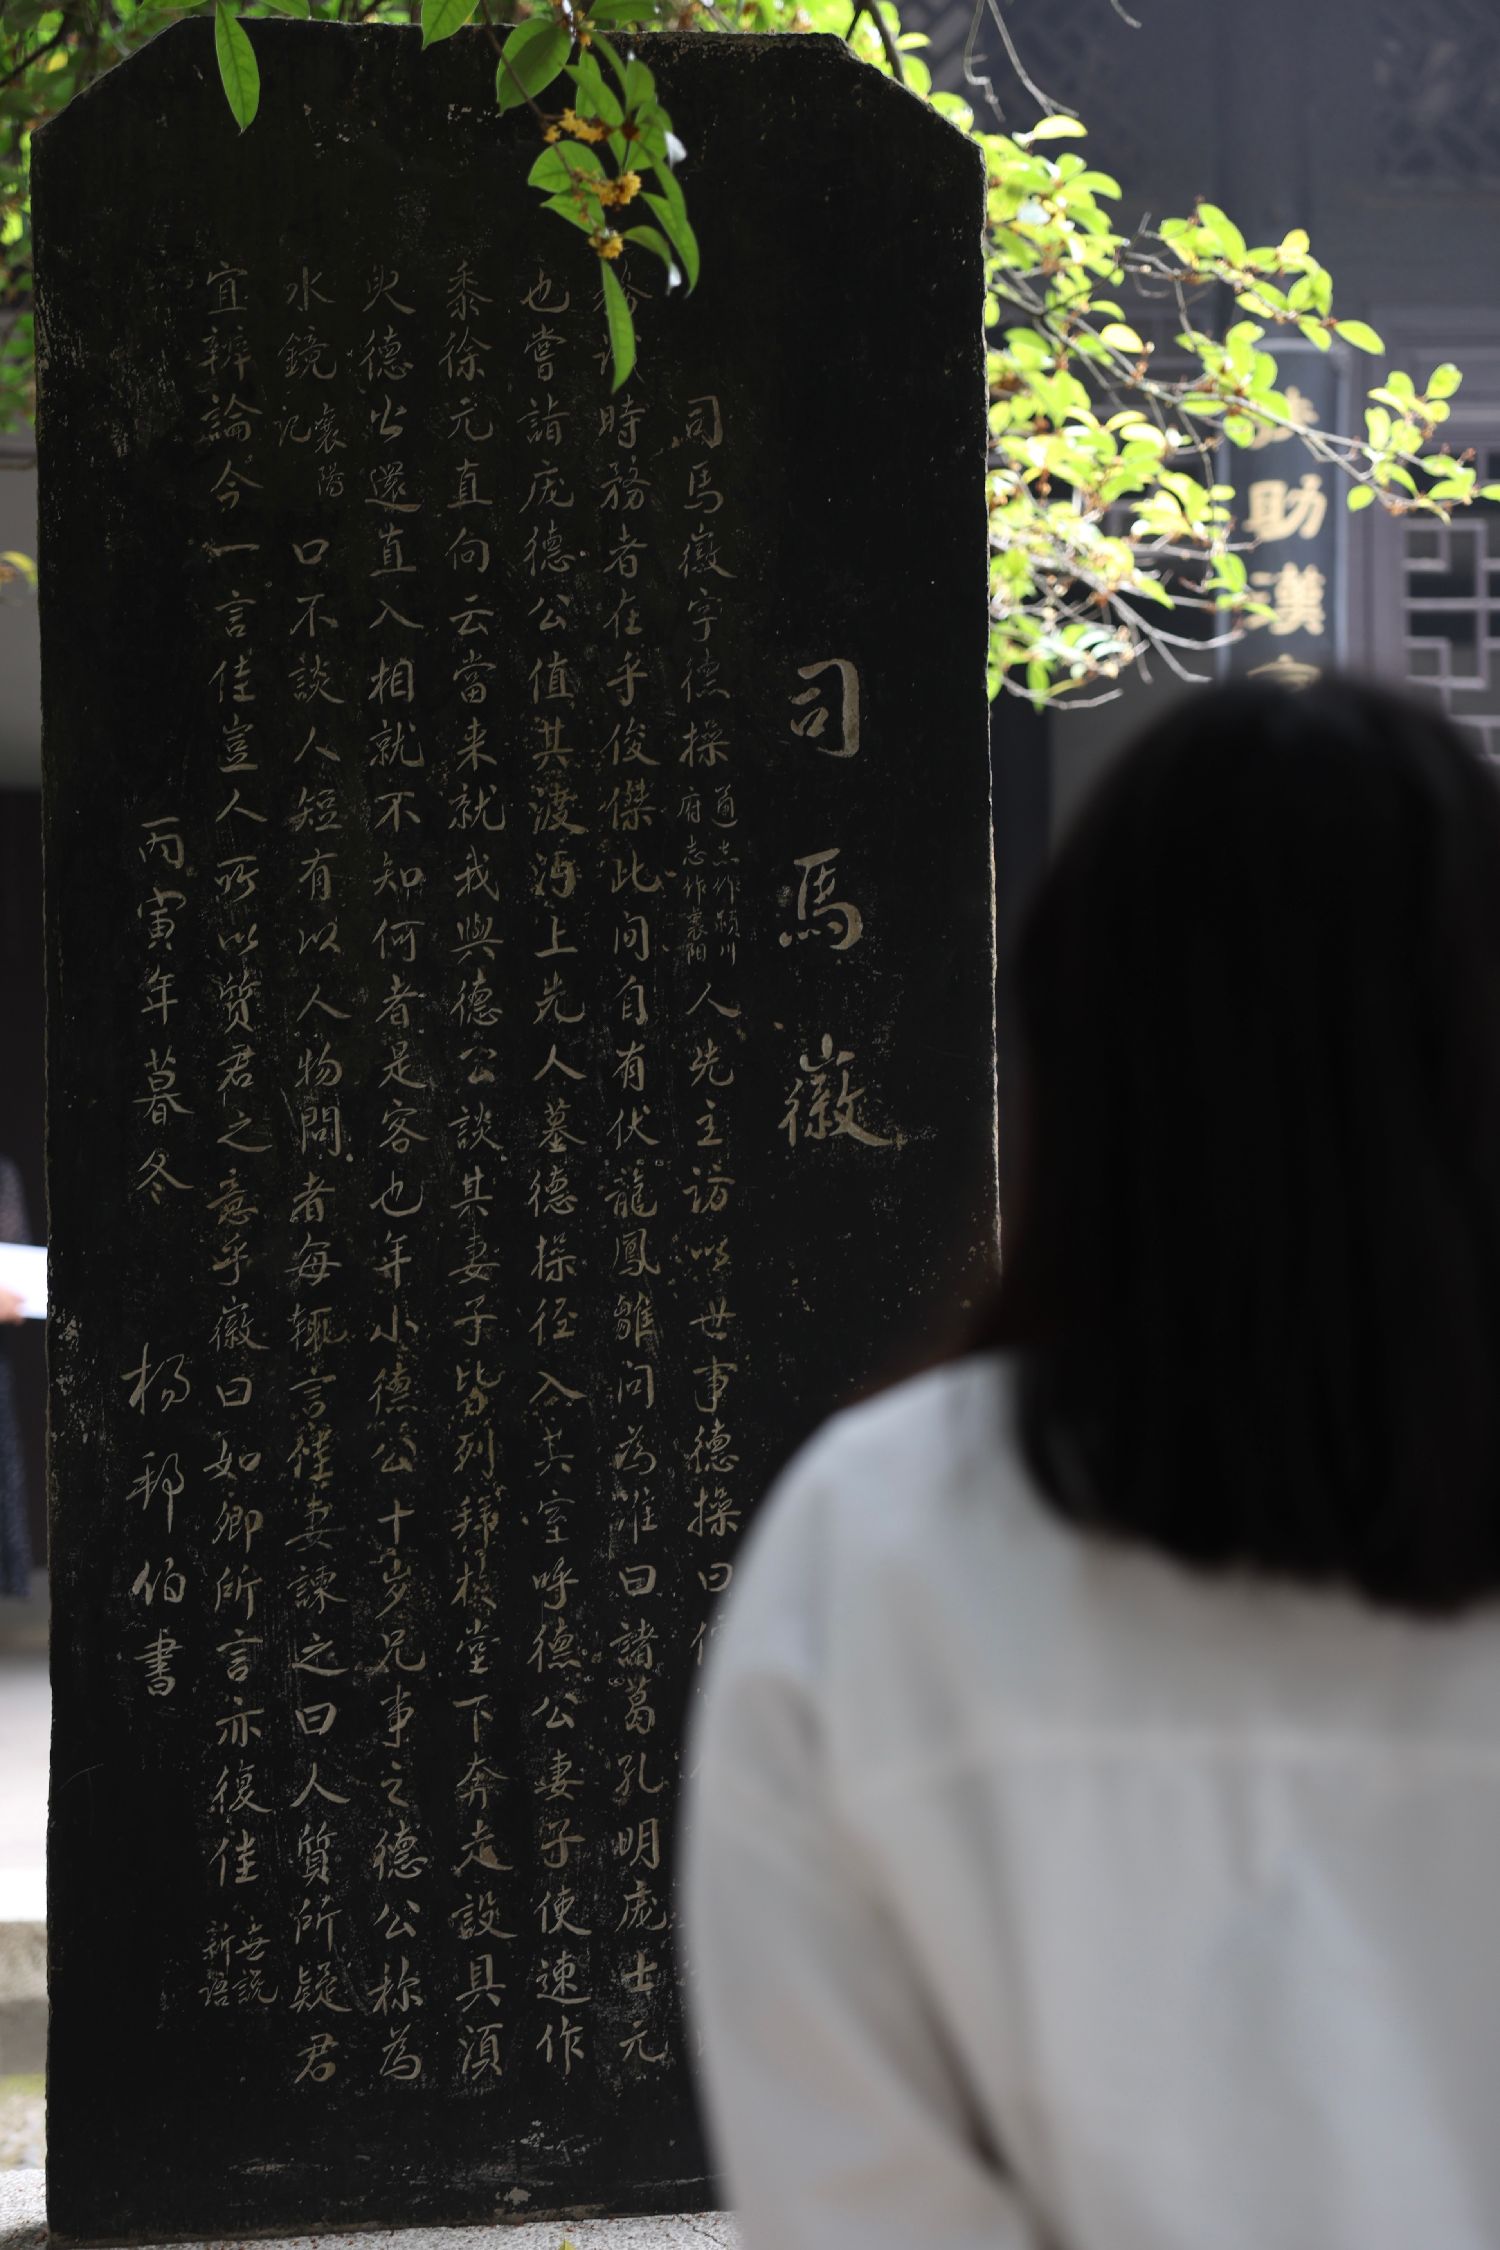 司馬徽
司馬徽字德操
通志作潁川
府志作襄阳
人先主訪以世事德操曰
時務者在乎俊傑此间自有伏龍鳳雛问為谁曰諸葛孔明庞士元
也嘗詣庞德公值其渡沔上先人墓德操径入其室呼德公妻子使速作
黍徐元直向云當来就我與德公談其妻子皆列拜於堂下奔走設具須
臾德公還直入相就不知何者是客也年小德公十岁兄事之德公称為
水鏡
襄陽
记
口不談人短有以人物問者每辄言佳妻諫之曰人質所疑君
宜辨論今一言佳豈人所以質君之意乎徽曰如卿所言亦復佳
世説
新語
丙寅年暮冬
杨邦伯書
助漢